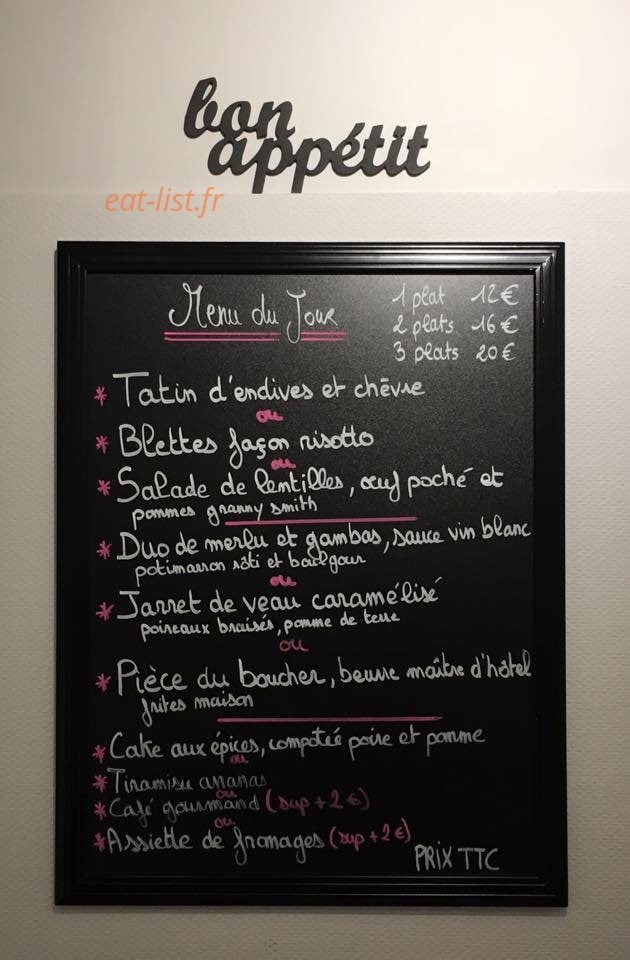 bon
appétit
eat-list.fr
Menu du Jour
1 plat 12€
2 plats 16€
3 plats 20€
* Tatin d'endives et chèvre
ou
* Blettes façon risotto
ou
* Salade de lentilles, œuf poché et
pommes granny smith
* Duo de merlu et gambas, sauce vin blanc
potimarron rôti et boulgour
ou
* Jarret de veau caramélisé
poireaux braisés, pomme de terre
ou
* Pièce du boucher, beurre maître d'hôtel
frites maison
* Cake aux épices, compotée poire et pomme
ou
* Tiramisu ananas
ou
* Café gourmand (sup + 2€)
ou
* Assiette de fromages (sup + 2€)
PRIX TTC